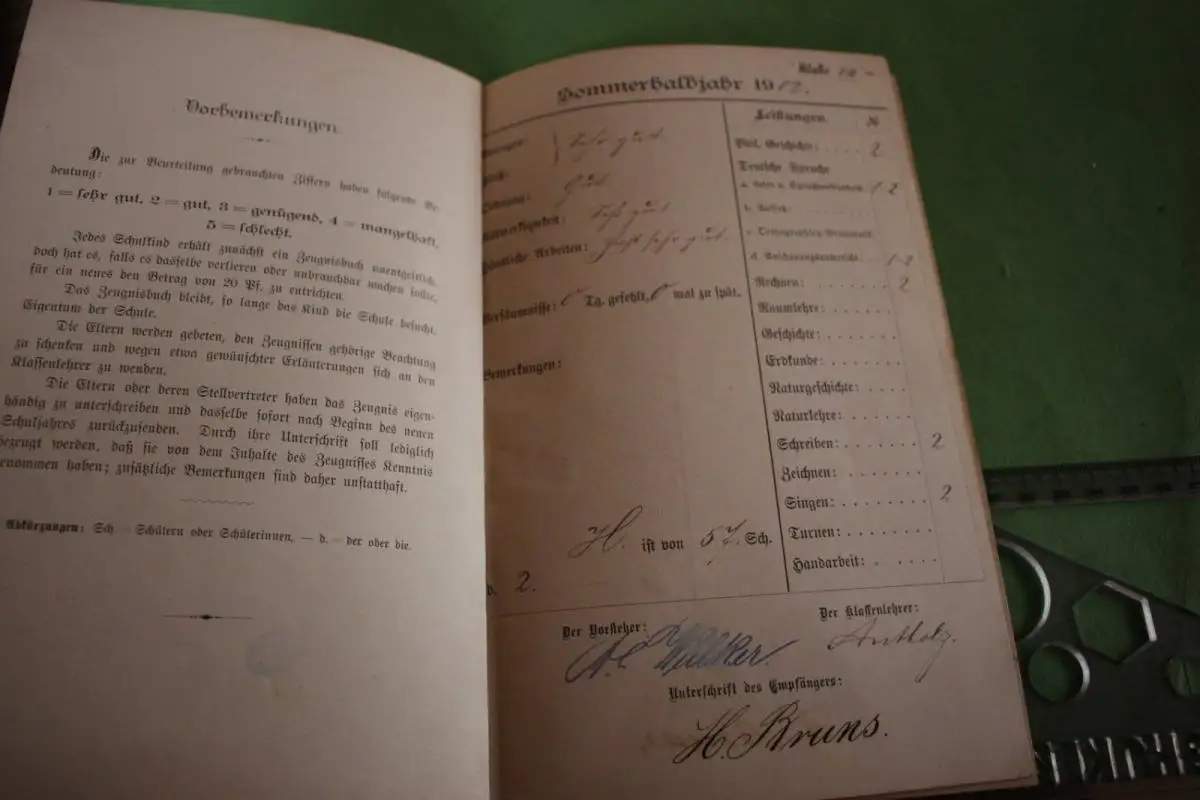 Vorbemerkungen.
Die zur Beurteilung gebrauchten Ziffern haben folgende Be-
deutung:
1 = sehr gut, 2 = gut, 3 = genügend, 4 = mangelhaft,
5 = schlecht.
Jedes Schulkind erhält zunächst ein Zeugnisbuch unentgeltlich,
doch hat es, falls es dasselbe verlieren oder unbrauchbar machen sollte,
für ein neues den Betrag von 20 Pf. zu entrichten.
Das Zeugnisbuch bleibt, so lange das Kind die Schule besucht,
Eigentum der Schule.
Die Eltern werden gebeten, den Zeugnissen gehörige Beachtung
zu schenken und wegen etwa gewünschter Erläuterungen sich an den
Klassenlehrer zu wenden.
Die Eltern oder deren Stellvertreter haben das Zeugnis eigen-
händig zu unterschreiben und dasselbe sofort nach Beginn des neuen
Schuljahres zurückzusenden. Durch ihre Unterschrift soll lediglich
bezeugt werden, daß sie von dem Inhalte des Zeugnisses Kenntnis
genommen haben; zusätzliche Bemerkungen sind daher unstatthaft.
Abkürzungen: Sch. = Schülern oder Schülerinnen, — d. = der oder die.
Klasse
Sommerhalbjahr 1912.
sehr gut
gut
sehr gut
Häusliche Arbeiten: fast sehr gut
Versäumnisse: 0 Tg. gefehlt, 0 mal zu spät.
Bemerkungen:
H. ist von 57 Sch.
d. 2.
Leistungen. №
Bibl. Geschichte: 2
Deutsche Sprache
1-2
b. Aufsatz:
d. Anschauungsunterricht: 1-2
Rechnen: 2
Raumlehre:
Geschichte:
Erdkunde:
Naturgeschichte:
Naturlehre:
Schreiben: 2
Zeichnen:
Singen: 2
Turnen:
Handarbeit:
Der Vorsteher:
Der Klassenlehrer:
Unterschrift des Empfängers:
H. Bruns.